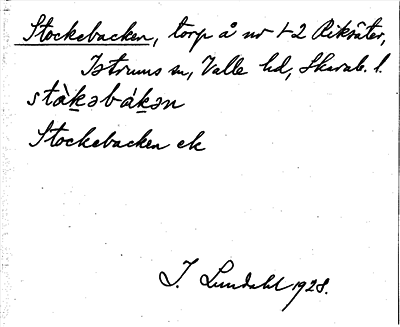 Stockebacken, torp å nr 1-2 Riksäter,
Istrums sn, Valle hd, Skarab. l.
stàk̲əbák̲ən
Stockebacken ek
I. Lundahl 1928.